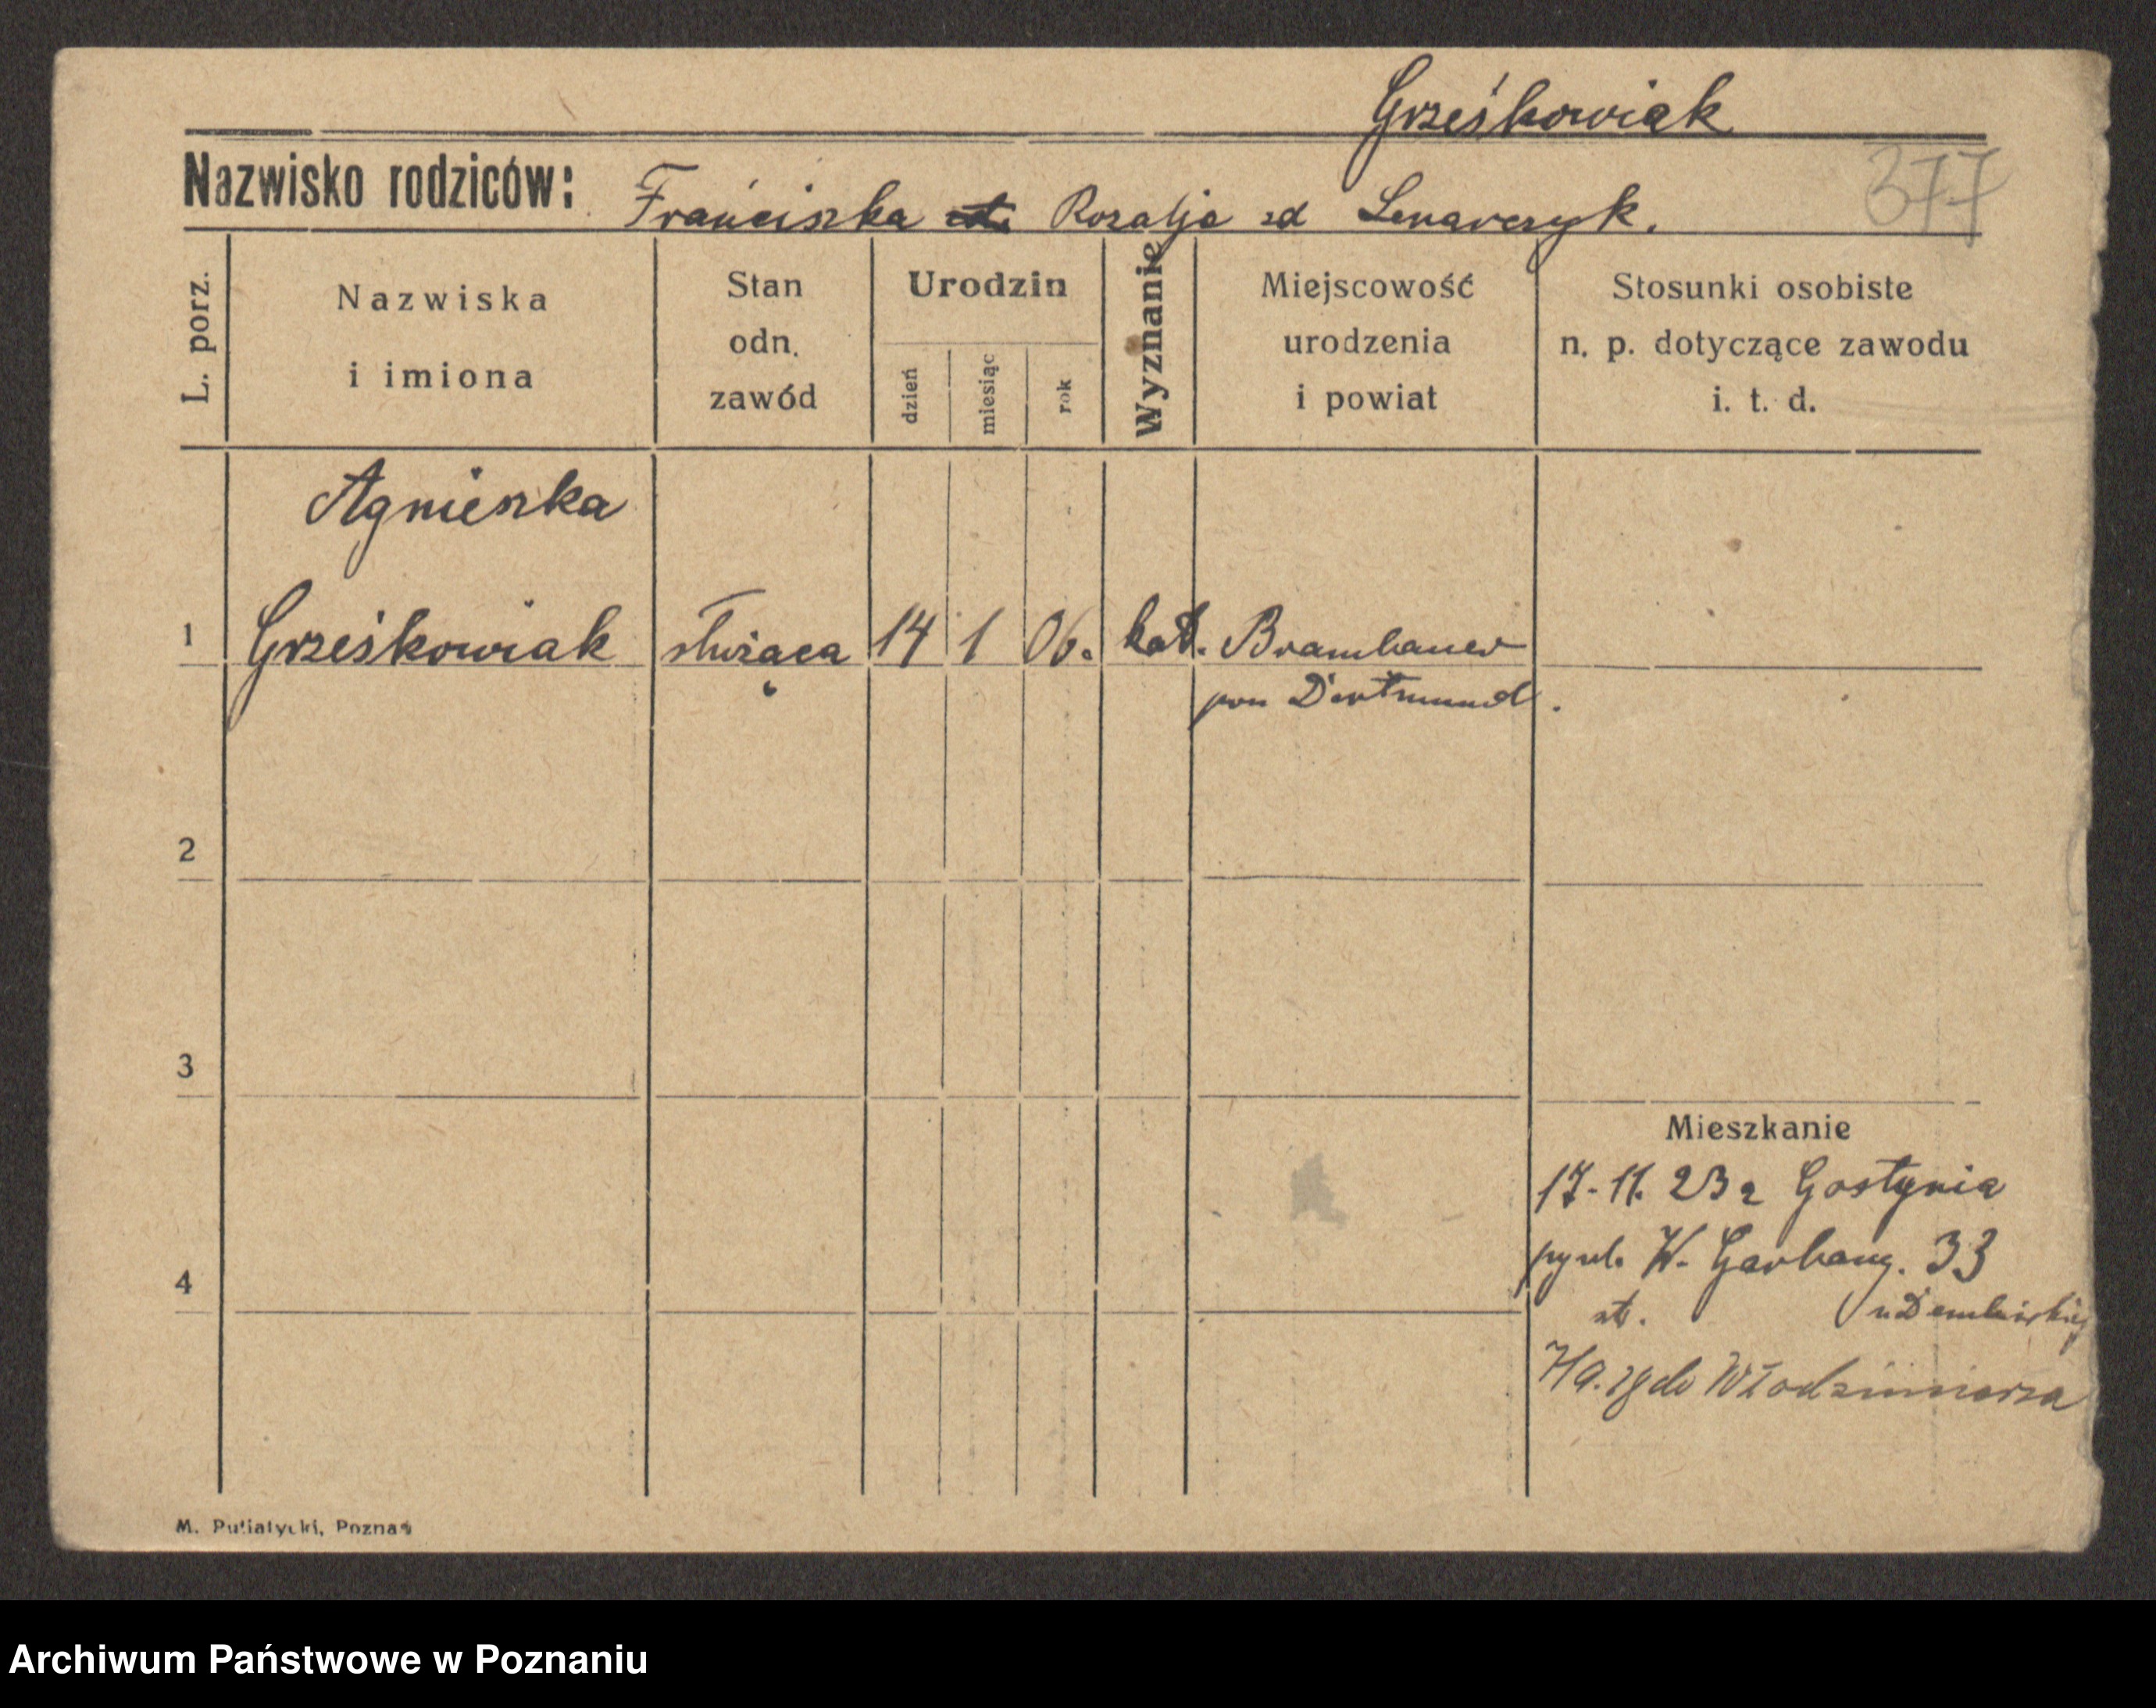 Grześkowiak
Nazwisko rodziców: Franciszka Rozalja zd Lenarczyk.
377
L. porz.
Nazwiska
i imiona
Stan
odn.
zawód
Urodzin
dzień
miesiąc
rok
Wyznanie
Miejscowość
urodzenia
i powiat
Stosunki osobiste
n. p. dotyczące zawodu
i. t. d.
Agnieszka
1 Grześkowiak służąca 14 1 06. kat. Brambauer
pow Dortmund.
2
3
Mieszkanie
17-11. 23 z Gostynia
W. Garbary. 33
4
Włodzimierza
M. Putiatycki, Poznań
Archiwum Państwowe w Poznaniu